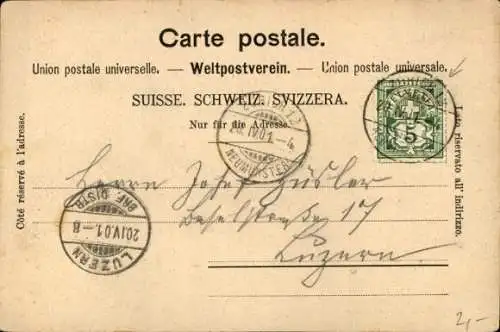 Carte postale.
Union postale universelle. — Weltpostverein. — Unione postale universale.
SUISSE. SCHWEIZ. SVIZZERA.
Nur für die Adresse.
Côté réservé à l'adresse.
Lato riservato all' indirizzo.
5
IV.01.-4
NEUMÜNSTER
Herrn Josef
17
Luzern
LUZERN
20.IV.01.-8
BRF. DISTR.
2,-